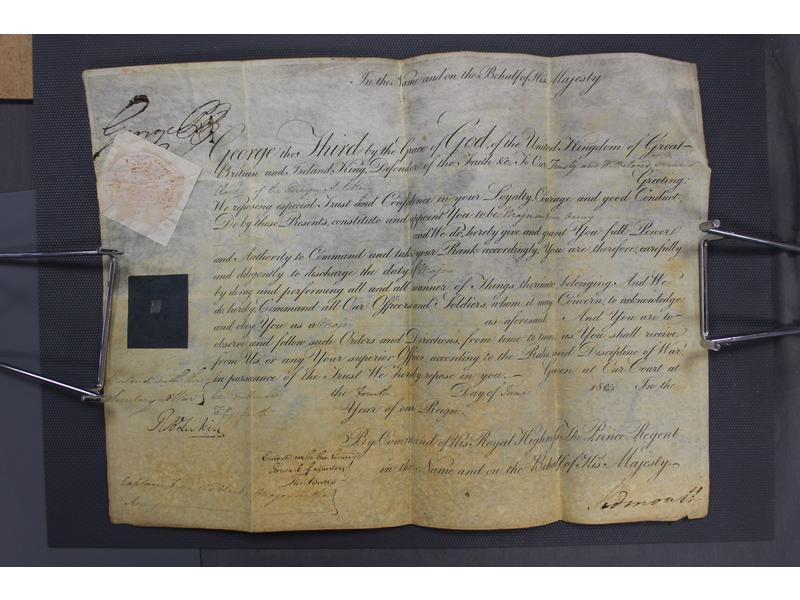 In the Name and on the Behalf of His Majesty
George P R
George the Third by the Grace of God, of the United Kingdom of Great
Britain and Ireland, King, Defender of the Faith &c. To Our Trusty and Welbeloved
of the Greeting:
We reposing especial Trust and Confidence in your Loyalty, Courage and good Conduct,
Do by these Presents, constitute and appoint You to be Major in our Army
and We do, hereby give and grant You full Power
and Authority to Command and take your Rank accordingly. You are therefore, carefully
and diligently to discharge the duty of Major
by doing and performing all and all manner of Things thereunto belonging. And We
do, hereby Command all Our Officers and Soldiers, whom it may Concern, to acknowledge
and obey You as a Major as aforesaid. And You are to
observe and follow such Orders and Directions, from time to time, as You shall receive
from Us, or any Your superior Officer, according to the Rules and Discipline of War,
in pursuance of the Trust We hereby repose in you. Given at Our Court at
the Fourth Day of June 18 In the
Year of our Reign.
By Command of His Royal Highness The Prince Regent
in the Name and on the Behalf of His Majesty.
Sidmouth
Secretary at War
Entered with the Commissary
General of Musters
Captain
Major in the
Army